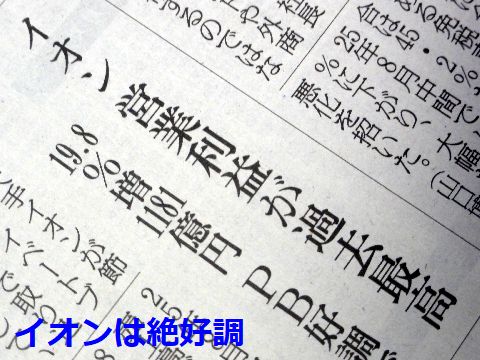 社長
や外商
するのではな
合は45・2%
25年8月中間で
%に下がり、大幅
悪化を招いた。(山口
イオン 営業利益が過去最高
19.8%増 1181億円 PB好調
手イオンが節
イベートブ
で取り
イオンは絶好調